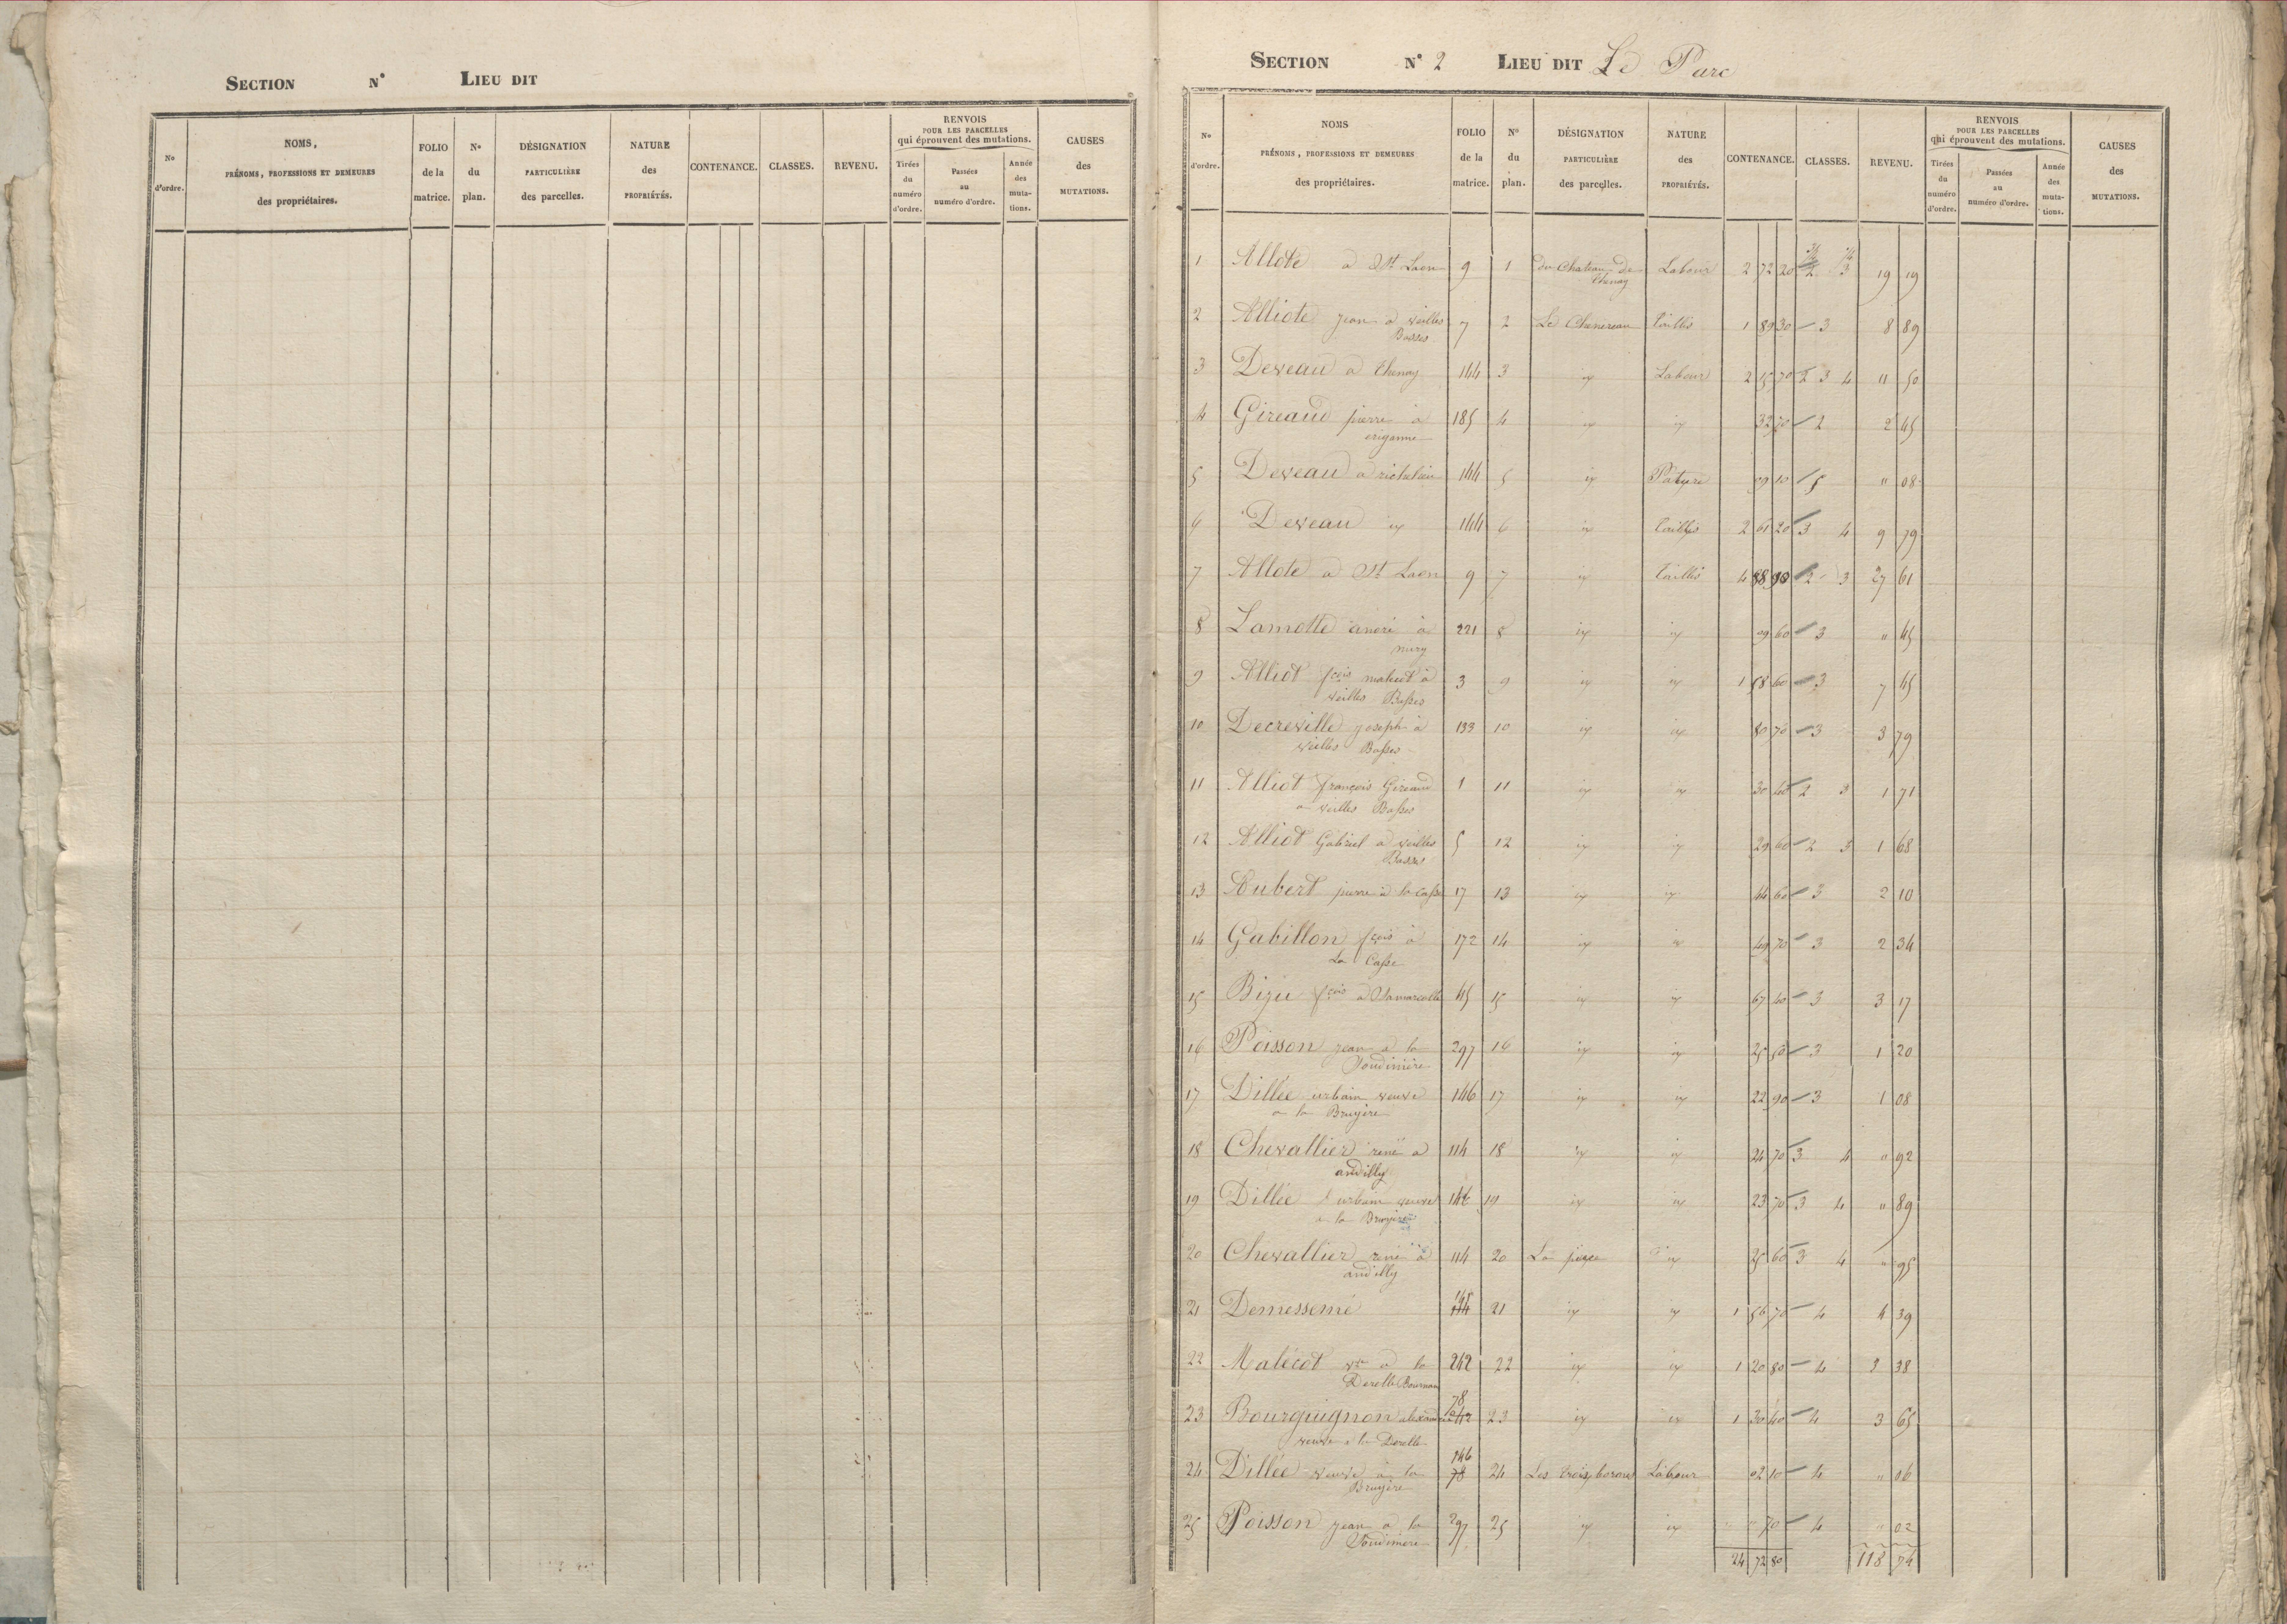 SECTION N° LIEU DIT
No d'ordre. NOMS, PRÉNOMS, PROFESSIONS ET DEMEURES des propriétaires. FOLIO de la matrice. No du plan. DÉSIGNATION PARTICULIÈRE des parcelles. NATURE des PROPRIÉTÉS. CONTENANCE. CLASSES. REVENU. RENVOIS POUR LES PARCELLES qui éprouvent des mutations. Tirées du numéro d'ordre. Passées au numéro d'ordre. Année des muta-tions. CAUSES des MUTATIONS.
SECTION N° 2 LIEU DIT Le Parc
No d'ordre. NOMS PRÉNOMS, PROFESSIONS ET DEMEURES des propriétaires. FOLIO de la matrice. No du plan. DÉSIGNATION PARTICULIÈRE des parcelles. NATURE des PROPRIÉTÉS. CONTENANCE. CLASSES. REVENU. RENVOIS POUR LES PARCELLES qui éprouvent des mutations. Tirées du numéro d'ordre. Passées au numéro d'ordre. Année des muta-tions. CAUSES des MUTATIONS.
1 Allote a St Laon 9 1 du Chateau de Labour 2 72 20 2 3 19 19
Chenay
2 Alliote jean a veilles 7 2 Le Chenereau taillis 1 89 30 3 8 89
Basses
3 Deveau a Chenay 144 3 Labour 2 15 70 2 3 4 11 50
4 Gireaud pierre à 185 4 32 70 2 2 45
5 Deveau a richelieu 144 5 Pature 09 10 5 " 08
6 Deveau 144 6 taillis 2 61 20 3 4 9 79
7 Allote a St Laon 9 7 taillis 4 88 90 2 3 27 61
8 Lamotte andré à 221 8 09 60 3 " 45
9 Alliot fcois à 3 9 1 58 60 3 7 45
veilles Basses
10 Decreville joseph à 133 10 80 70 3 3 79
veilles Basses
11 Alliot françois Gireaud 1 11 30 40 2 3 1 71
a veilles Basses
12 Alliot Gabriel a veilles 5 12 29 60 2 3 1 68
Basses
13 Aubert pierre à la Casse 17 13 44 60 3 2 10
14 Gabillon fcois à 172 14 49 70 3 2 34
La Casse
15 Bizu fcois a 45 15 67 40 3 3 17
16 Poisson jean a la 297 16 25 50 3 1 20
17 Dillée urbain veuve 146 17 22 90 3 1 08
a la Bruyère
18 Chevallier rené a 114 18 24 70 3 4 " 92
andilly
19 Dillée urbain veuve 146 19 23 70 3 4 " 89
a la Bruyère
20 Chevallier rené à 114 20 La piece 25 60 3 4 " 95
andilly
21 Demessemé 21 1 56 70 4 4 39
22 Malécot ve a la 242 22 1 20 80 4 3 38
23 Bourguignon 78 23 1 30 40 4 3 65
veuve a la
24 Dillée veuve à la 146 78 24 Les trois Labour 02 10 4 " 06
Bruyère
25 Poisson jean a la 297 25 " " 70 4 " 02
24 72 80 118 74